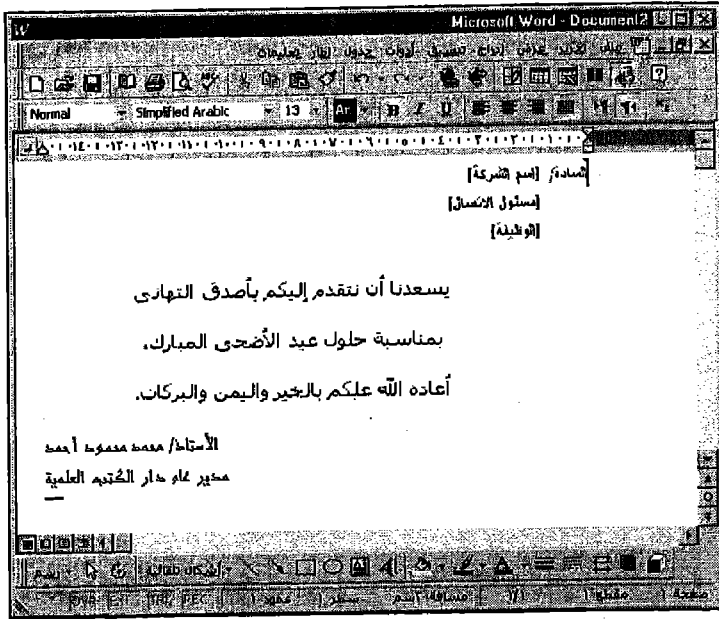 Microsoft Word - Document2
ملف تحرير عرض إدراج تنسيق أدوات جدول إطار تعليمات
Normal Simplified Arabic 13
السادة/ [اسم الشركة]
[مسئول الاتصال]
[الوظيفة]
يسعدنا أن نتقدم إليكم بأصدق التهانى
بمناسبة حلول عيد الأضحى المبارك،
أعاده الله عليكم بالخير واليمن والبركات.
الأستاذ/ محمد محمود أحمد
مدير عام دار الكتب العلمية
رسم أشكال تلقائية
صفحة ١ مقطع ١ ١/١ مسافة ٢سم سطر ١ عمود ١ REC TRK EXT OVR